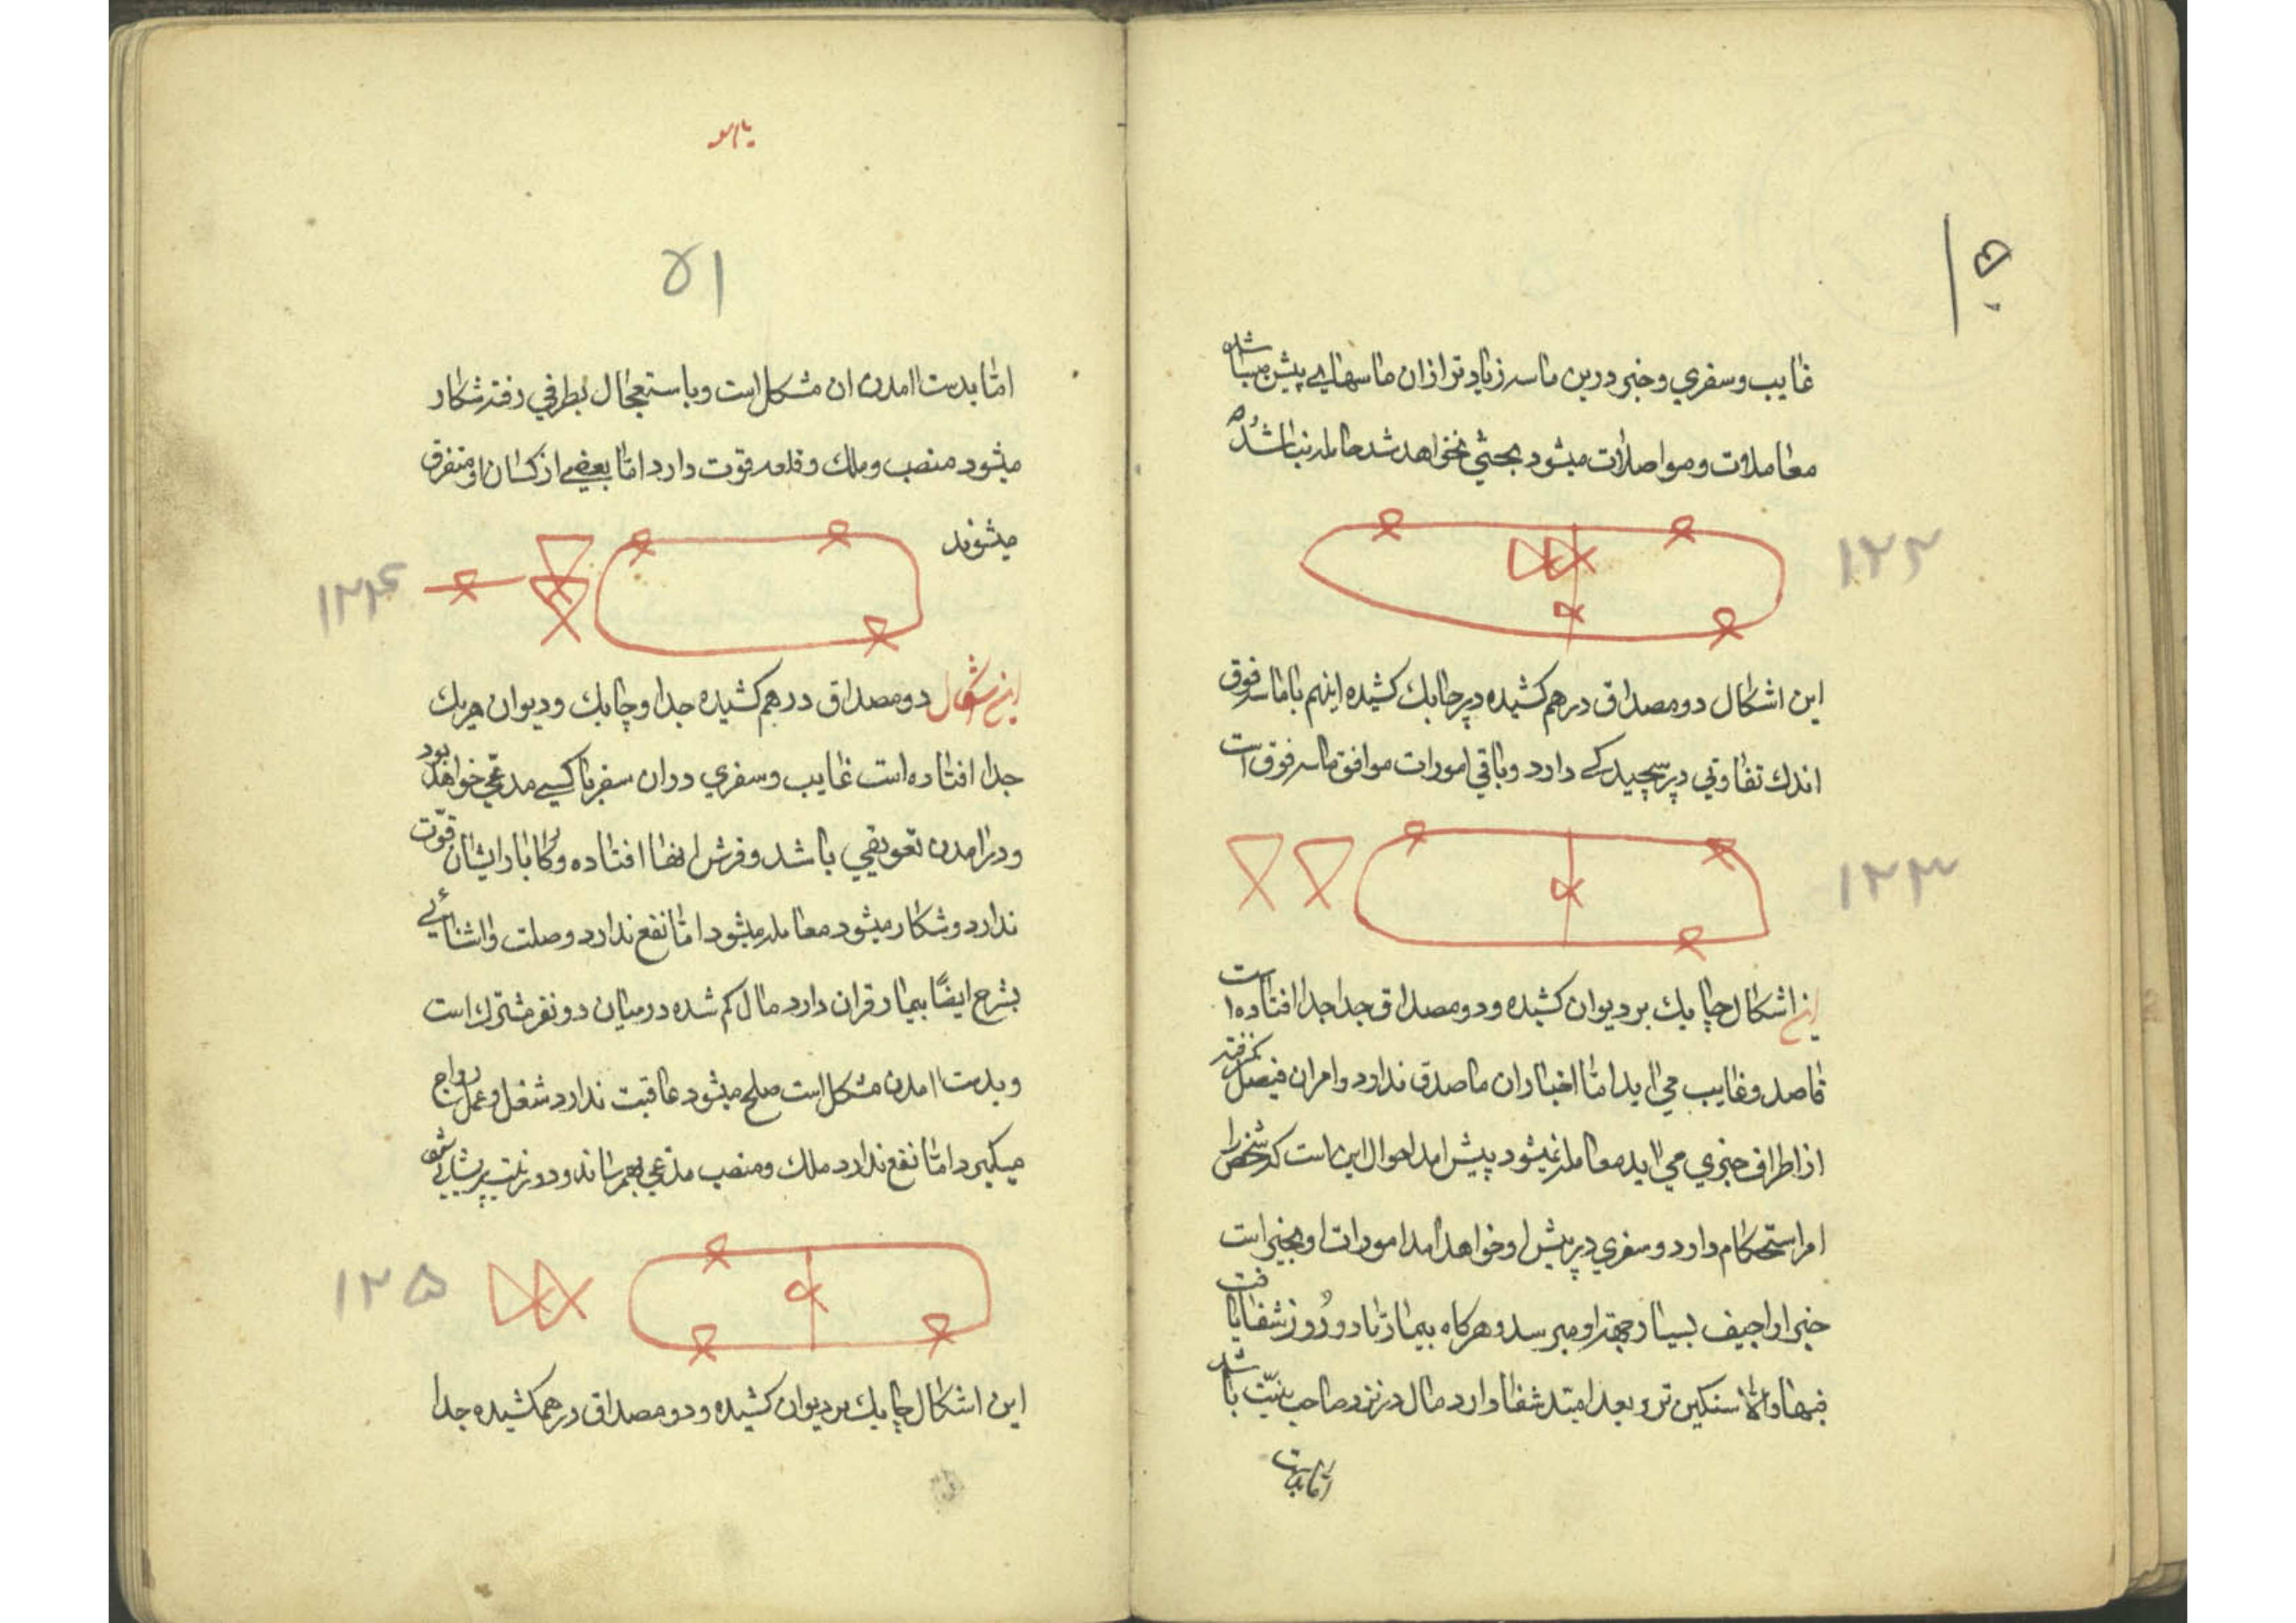 غایب و سفري و خبر درین ماسه زیاد تر از ان ماسهاي پیش میباشد
معاملات و مواصلات میشود بحثي نخواهد شد حامله نباشد
۱۲۲
این اشکال دو مصداق درهم کشیده در چابك کشیده اینهم با ماسه فوق
اندك تفاوتي در پیچیدگي دارد و باقي امورات موافق ماسه فوق است
۱۲۳
این اشکال چابك بر دیوان کشیده و دو مصداق جدا جدا افتاده است
قاصد و غایب مي اید اما اخبار ان ماصدق ندارد و امر ان فیصل
از اطراف خبري مي اید معامله نمیشود پیش امد احوال این است که شخص را
امر استحکام دارد و سفري در پیش او خواهد امد امورات او بخیر است
خبر اراجیف بسیار جهة او میرسد و هرگاه بیمار تا دو روز شفا یافت
فبها و الا سنگین تر و بعد امتد شفا دارد مال در نزد صاحب نیت باشد
اما بدست
۵۱
اما بدست امدن ان مشکل است و باستعجال بطرفي رفته شکار
میشود منصب و ملك و قلعه قوت دارد اما بعضي از کسان او متفرق
میشوند
۱۲۴
این اشکال دو مصداق درهم کشیده جدا و چابك و دیوان هریك
جدا افتاده است غایب و سفري در ان سفر با کسي مدعي خواهد بود
و در امدن تعویقي باشد و فرش انها افتاده و کار بار ایشان قوت
ندارد و شکار میشود معامله میشود اما نفع ندارد وصلت و اشنائي
بشرح ایضًا بیمار قران دارد مال گم شده در میان دو نفر مشترك است
و بدست امدن مشکل است صلح میشود عاقبت ندارد شغل و عمل رواج
میگیرد اما نفع ندارد ملك و منصب مدعي بهم رساند و در نیت پریشاني
۱۲۵
این اشکال چابك بر دیوان کشیده و دو مصداق درهم کشیده جدا